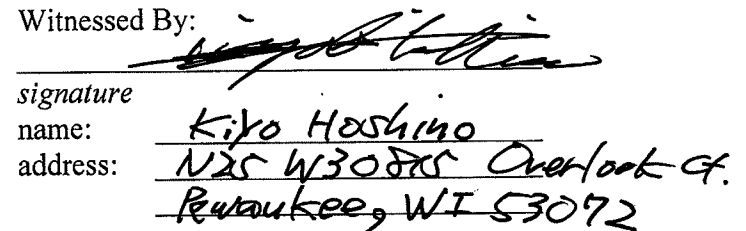 Witnessed By:
signature
name: Kiyo Hoshino
address: N25 W30815 Overlook Ct.
Pewaukee, WI 53072